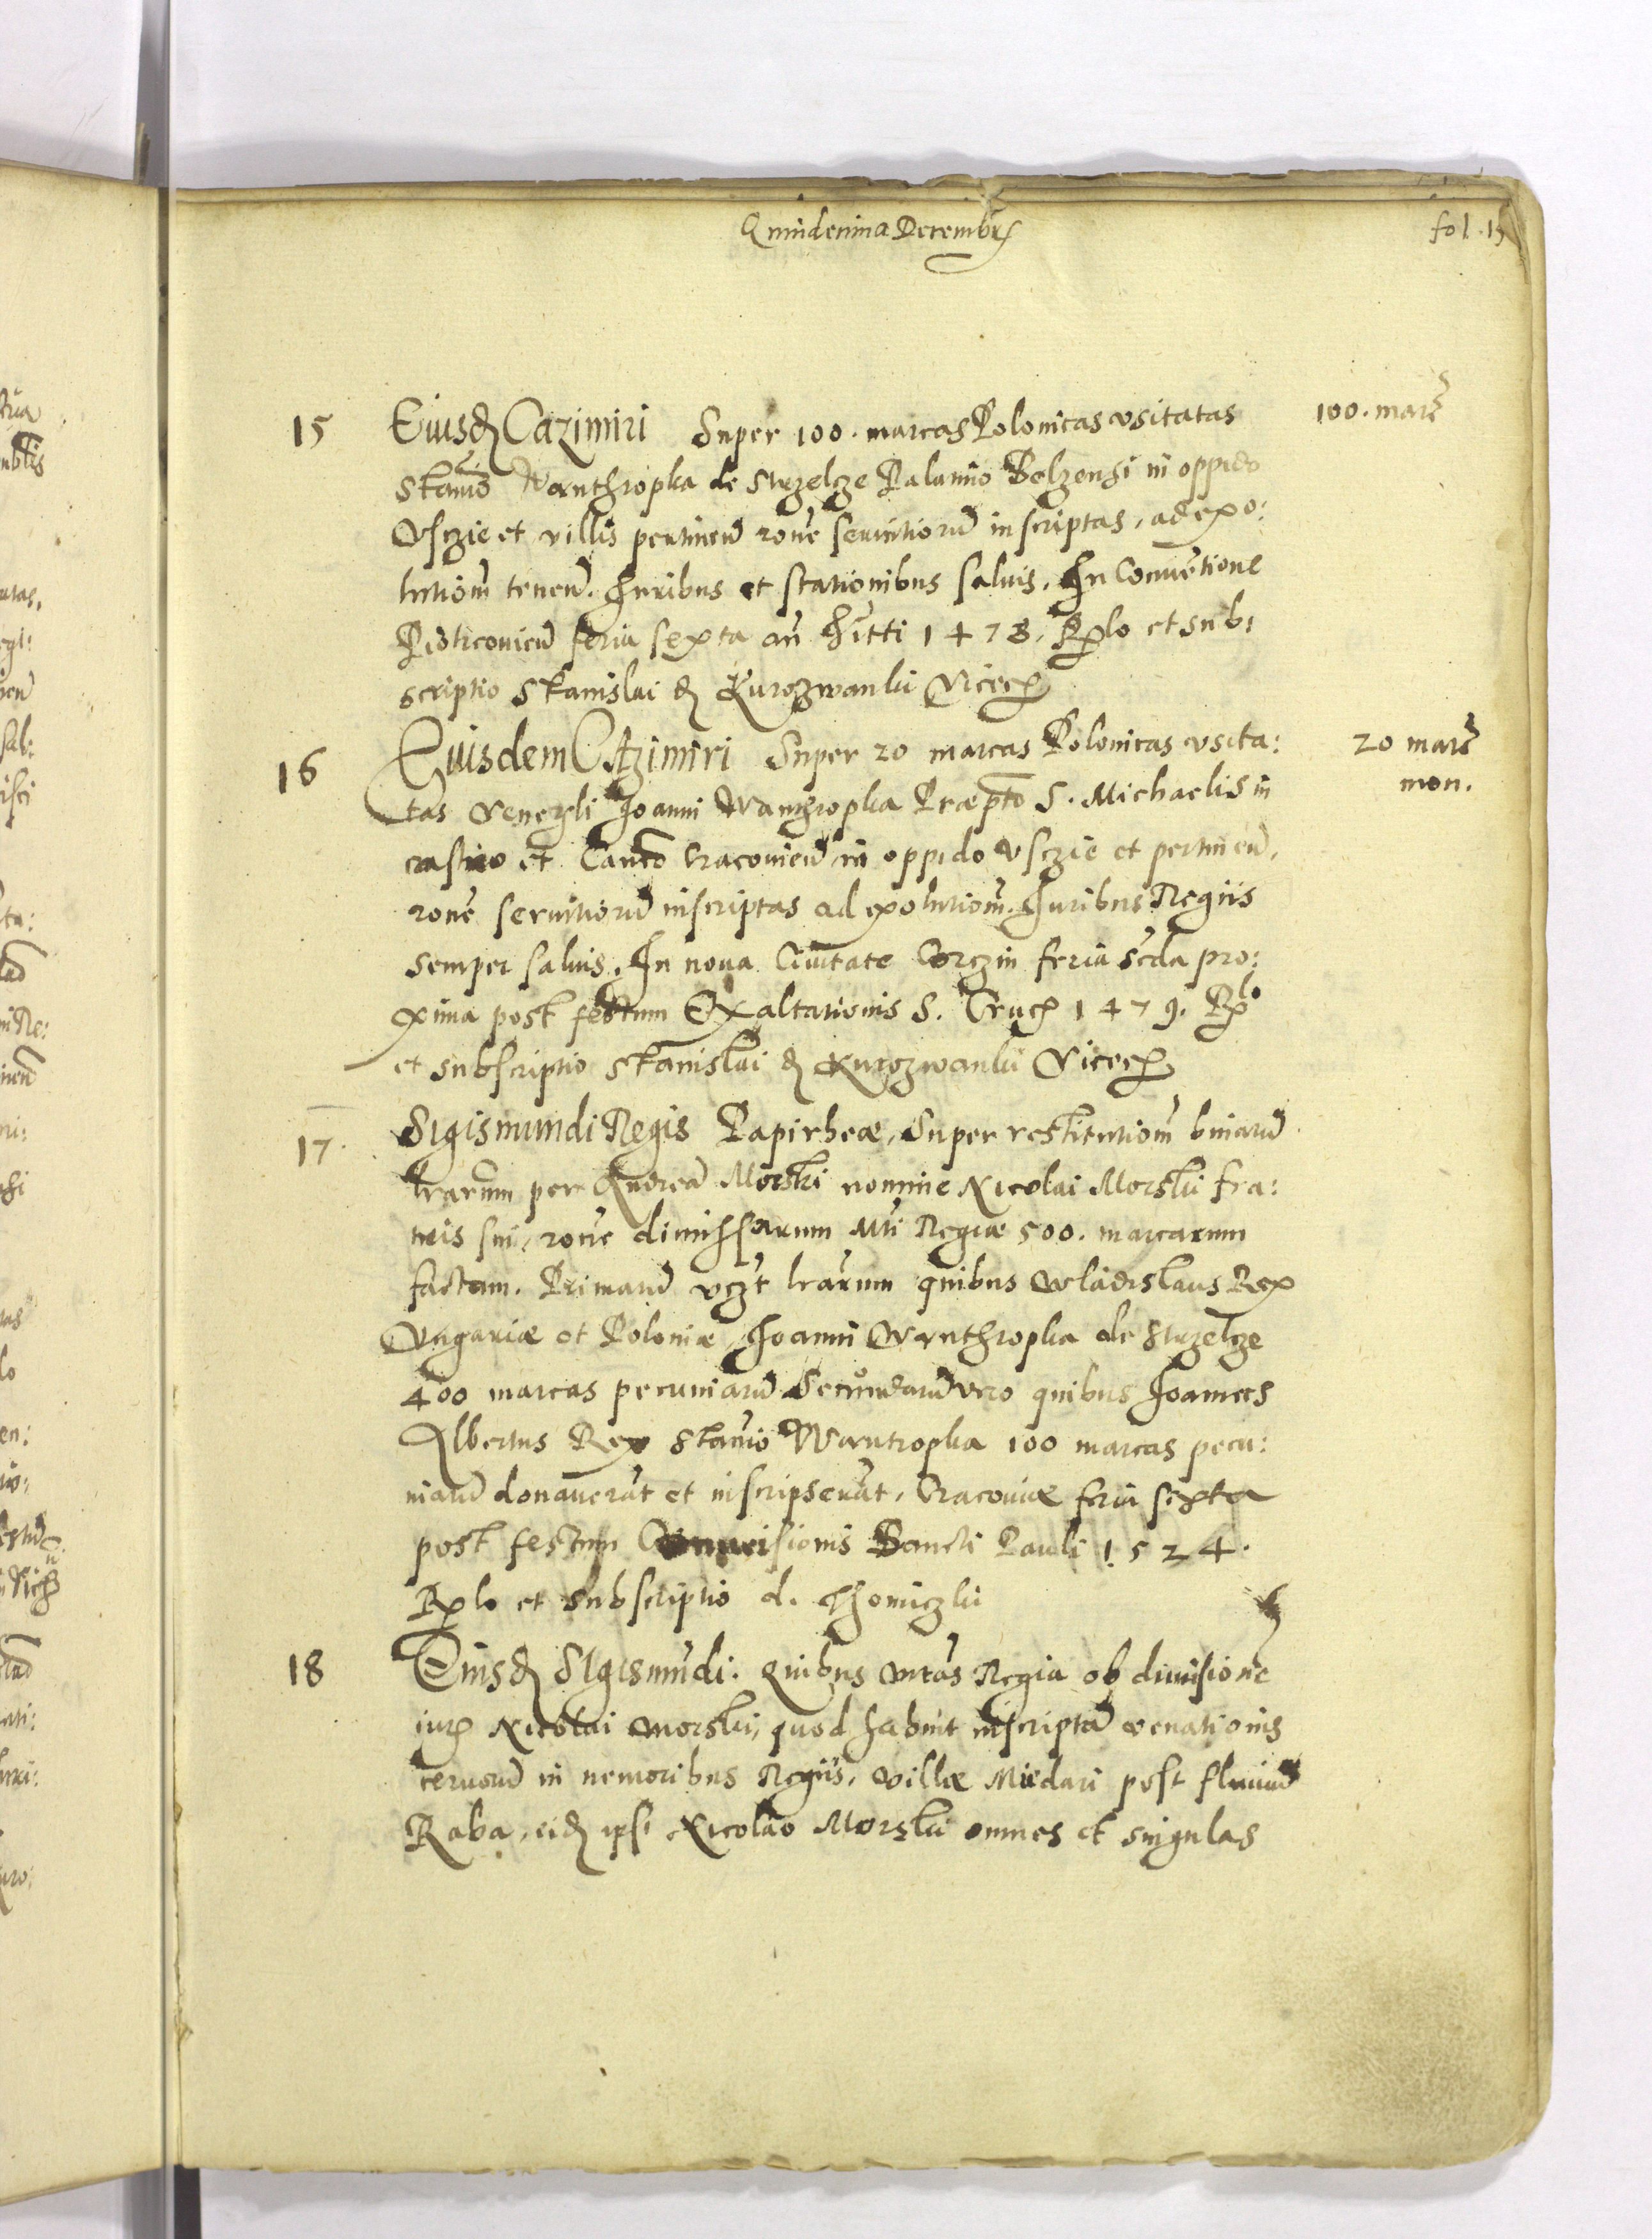 Quindenina Decembris
fol. 15
15 Eiusd Cazimiri Super 100. marcas Polonicas vsitatas 100. marc
Stanio Wanthropka de Strzelcze Palatino Belzensi in oppido
Vsczie et villis pertinen rone seruitioru inscriptas, ad exo:
lutiom tenen. Iuribus et stationibus saluis. In Conuetione
Piotrcouien feria sexta an 1478. Rplo et sub:
scriptio Stanislai d Kurozwanki Vicecan
16 Eiusdem Cazimiri Super 20 marcas Polonicas vsita: 20 marc
tas Venerabli Ioanni Wanthropka Praepto S. Michaelis in mon.
castro et Canco Cracouien in oppido Vsczie et pertinen,
rone seruitioru inscriptas ad exolutiom. Iuribus Regiis
semper saluis. In noua Ciuitate Corczin feria scda pro:
xima post festum Exaltationis S. Crucis 1479. Rplo
et subscriptio Stanislai d Kurozwanki Vicecan
17. Sigismundi Regis Papirheæ, Super restitutiom binaru
lrarum per Andrea Morski nomine Nicolai Morski fra:
tris sui, rone dimissarum Mti Regiæ 500. marcarum
factam. Primaru vczt lrarum quibus Wladislaus Rex
Vngariæ et Poloniæ, Ioanni Wanthropka de Strzelcze
400 marcas pecuniaru Secundaru vero quibus Ioannes
Albertus Rex Stanio Wantropka 100 marcas pecu:
niaru donauerut et inscripserut, Cracouiæ feria sexta
post festum Conuersionis Sancti Pauli 1524.
Rplo et subscriptio d. Thomiczki
18 Eiusd Sigismudi. Quibus Mtas Regia ob dimisione
iuris Nicolai Morski, quod habuit inscriptu venationis
ceruoru in nemoribus Regiis, villæ Miedari post fluuiu
Raba, eid ipsi Nicolao Morski omnes et singulas